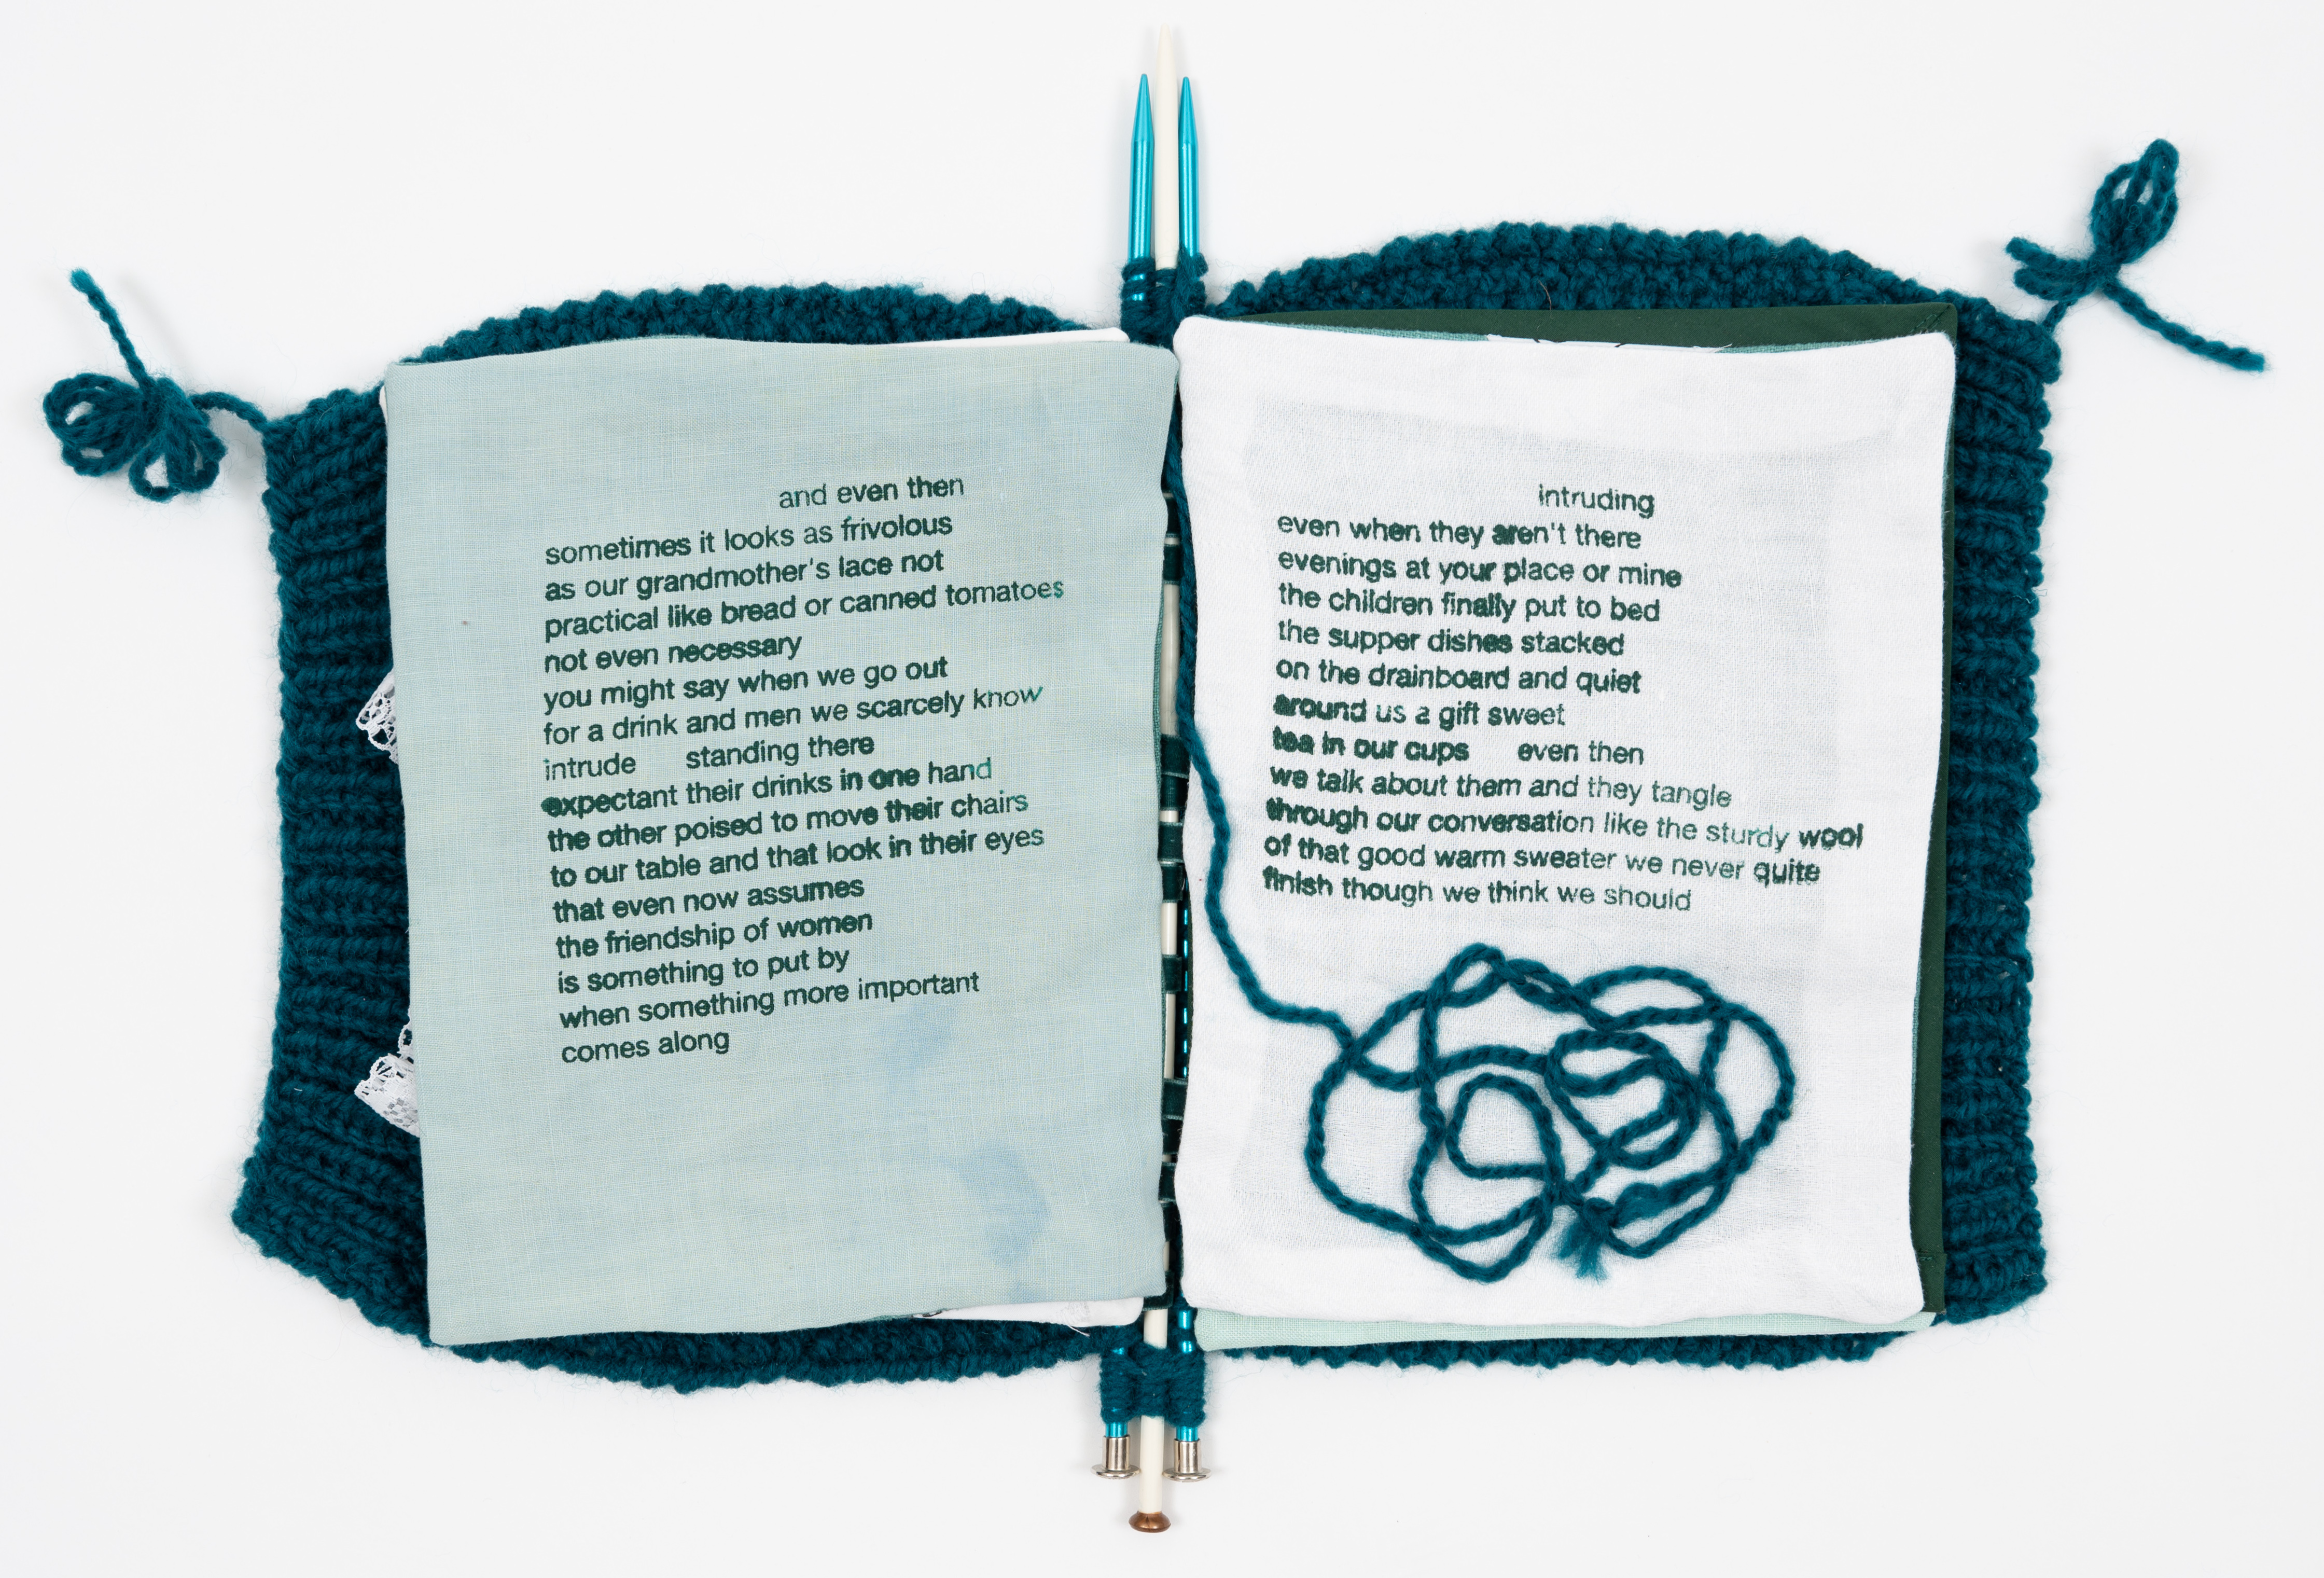 and even then
sometimes it looks as frivolous
as our grandmother's lace not
practical like bread or canned tomatoes
not even necessary
you might say when we go out
for a drink and men we scarcely know
intrude standing there
expectant their drinks in one hand
the other poised to move their chairs
to our table and that look in their eyes
that even now assumes
the friendship of women
is something to put by
when something more important
comes along
intruding
even when they aren't there
evenings at your place or mine
the children finally put to bed
the supper dishes stacked
on the drainboard and quiet
around us a gift sweet
tea in our cups even then
we talk about them and they tangle
through our conversation like the sturdy wool
of that good warm sweater we never quite
finish though we think we should